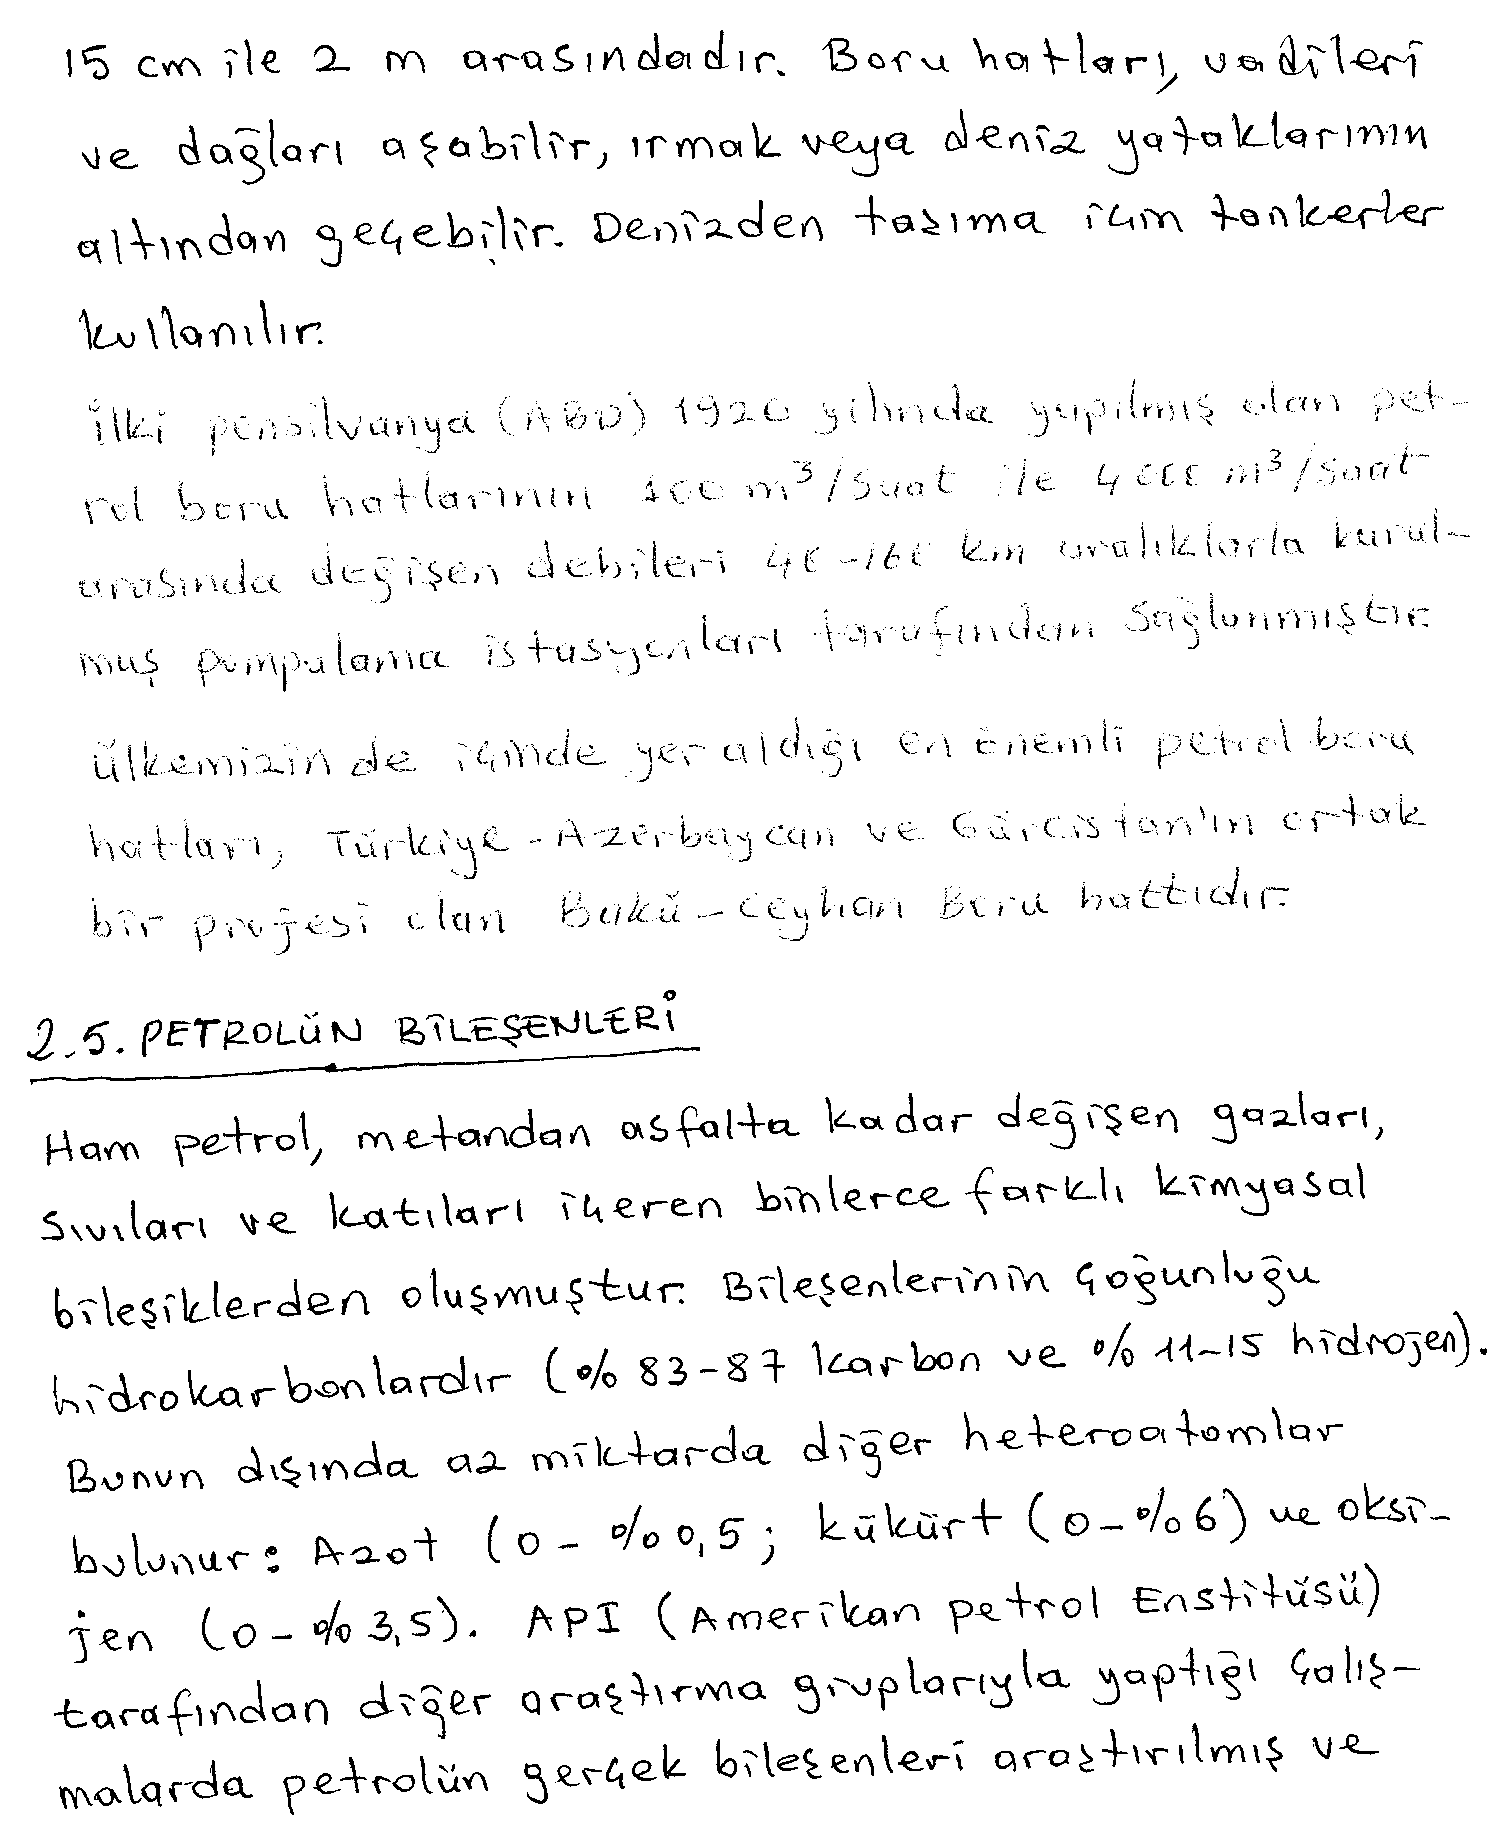 15 cm ile 2 m arasındadır. Boru hatları, vadileri
ve dağları aşabilir, ırmak veya deniz yataklarının
altından geçebilir. Denizden taşıma için tankerler
kullanılır.
İlki pensilvanya (ABD) 1920 yılında yapılmış olan pet-
rol boru hatlarının 100 m³/saat ile 4000 m³/saat
arasında değişen debileri 40-160 km aralıklarla kurul-
muş pompalama istasyonları tarafından sağlanmıştır.
ülkemizin de içinde yer aldığı en önemli petrol boru
hatları, Türkiye-Azerbaycan ve Gürcistan'ın ortak
bir projesi olan Bakü-Ceyhan Boru hattıdır.
2.5. PETROLÜN BİLEŞENLERİ
Ham petrol, metandan asfalta kadar değişen gazları,
sıvıları ve katıları içeren binlerce farklı kimyasal
bileşiklerden oluşmuştur. Bileşenlerinin çoğunluğu
hidrokarbonlardır (% 83-87 karbon ve % 11-15 hidrojen).
Bunun dışında az miktarda diğer heteroatomlar
bulunur: Azot (0 - %0,5; kükürt (0-%6) ve oksi-
jen (0-%3,5). API (Amerikan petrol Enstitüsü)
tarafından diğer araştırma gruplarıyla yaptığı çalış-
malarda petrolün gerçek bileşenleri araştırılmış ve